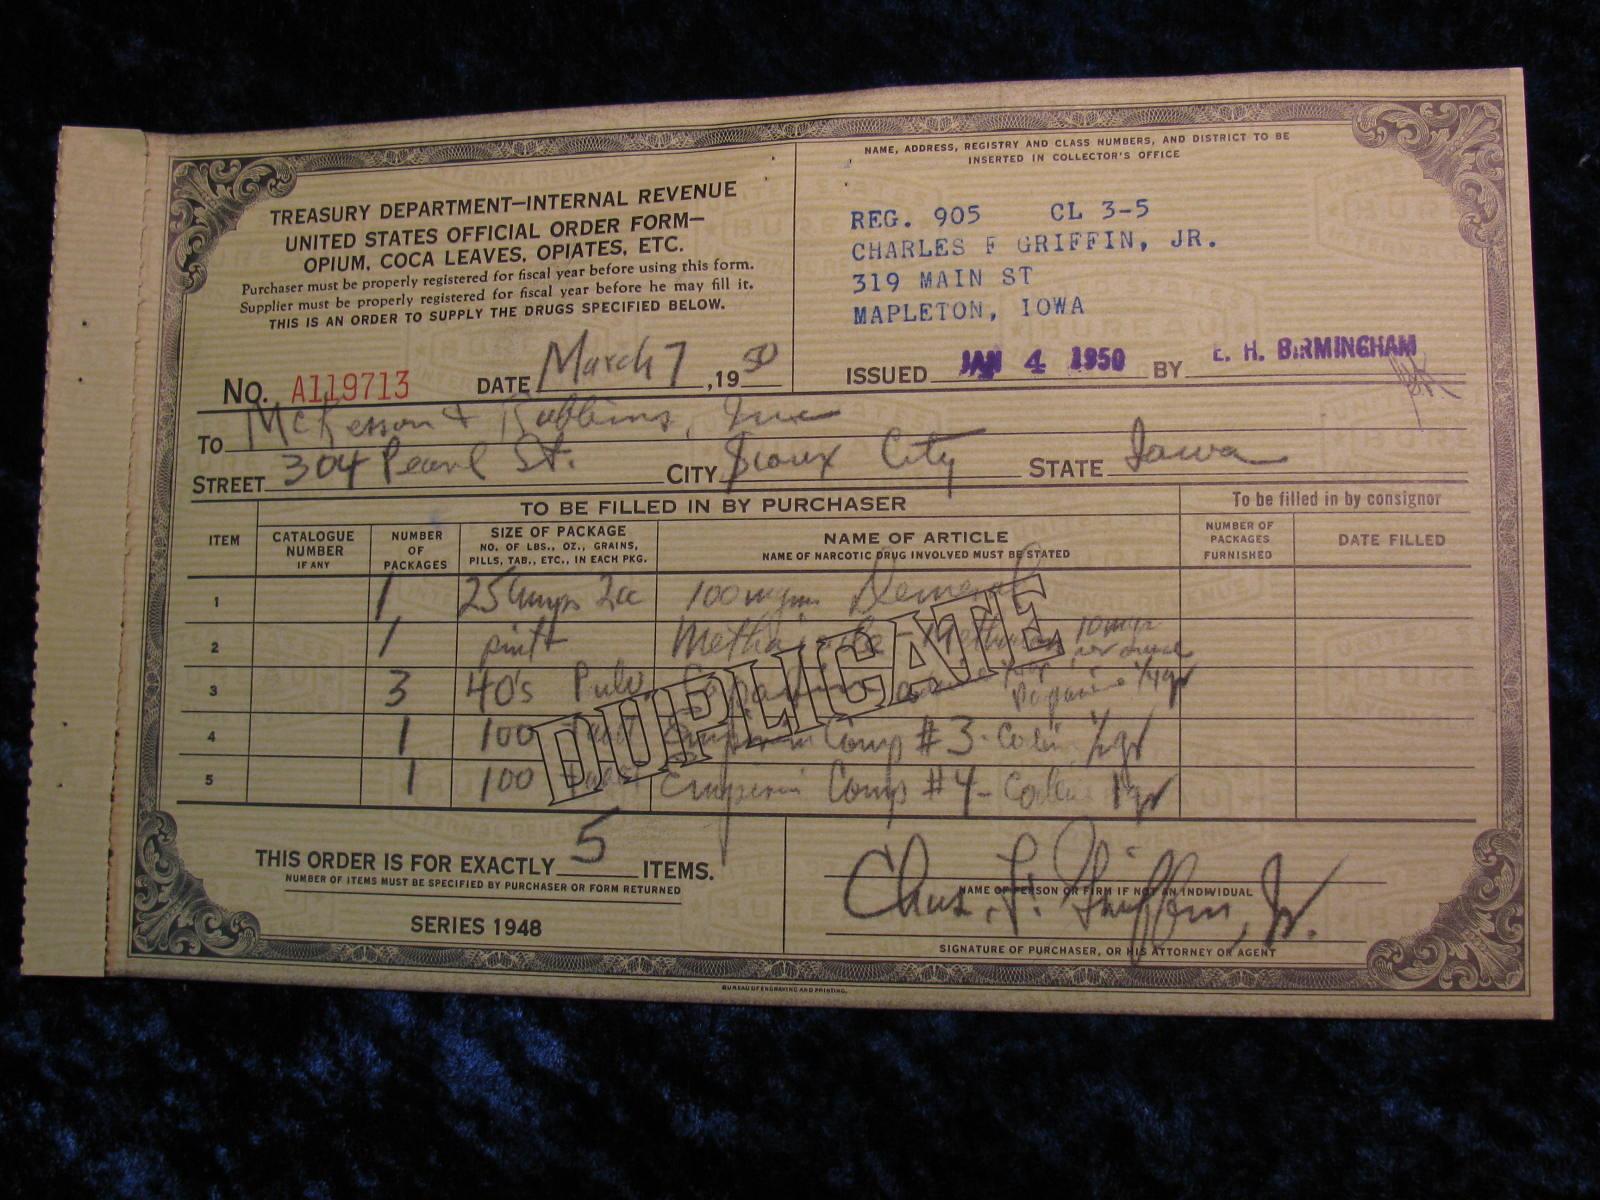 NAME, ADDRESS, REGISTRY AND CLASS NUMBERS, AND DISTRICT TO BE
INSERTED IN COLLECTOR'S OFFICE
TREASURY DEPARTMENT—INTERNAL REVENUE
UNITED STATES OFFICIAL ORDER FORM—
OPIUM, COCA LEAVES, OPIATES, ETC.
Purchaser must be properly registered for fiscal year before using this form.
Supplier must be properly registered for fiscal year before he may fill it.
THIS IS AN ORDER TO SUPPLY THE DRUGS SPECIFIED BELOW.
REG. 905 CL 3-5
CHARLES F GRIFFIN, JR.
319 MAIN ST
MAPLETON, IOWA
NO. A119713 DATE March 7, 1950
ISSUED JAN 4 1950 BY E. H. BIRMINGHAM
TO McKesson & Robbins, Inc
STREET 304 Pearl St. CITY Sioux City STATE Iowa
TO BE FILLED IN BY PURCHASER
To be filled in by consignor
ITEM
CATALOGUE NUMBER IF ANY
NUMBER OF PACKAGES
SIZE OF PACKAGE
NO. OF LBS., OZ., GRAINS, PILLS, TAB., ETC., IN EACH PKG.
NAME OF ARTICLE
NAME OF NARCOTIC DRUG INVOLVED MUST BE STATED
NUMBER OF PACKAGES FURNISHED
DATE FILLED
1 1 25 Amps 2cc 100 mgm Demerol
2 1 pint 10 mgr
3 3 40's Pulv. 1/4gr
4 1 100 Empirin Comp #3 - Codein 1/2gr
5 1 100 Empirin Comp #4 - Codein 1gr
DUPLICATE
THIS ORDER IS FOR EXACTLY 5 ITEMS.
NUMBER OF ITEMS MUST BE SPECIFIED BY PURCHASER OR FORM RETURNED
SERIES 1948
NAME OF PERSON OR FIRM IF NOT AN INDIVIDUAL
Chas. F. Griffin, Jr.
SIGNATURE OF PURCHASER, OR HIS ATTORNEY OR AGENT
BUREAU OF ENGRAVING AND PRINTING.